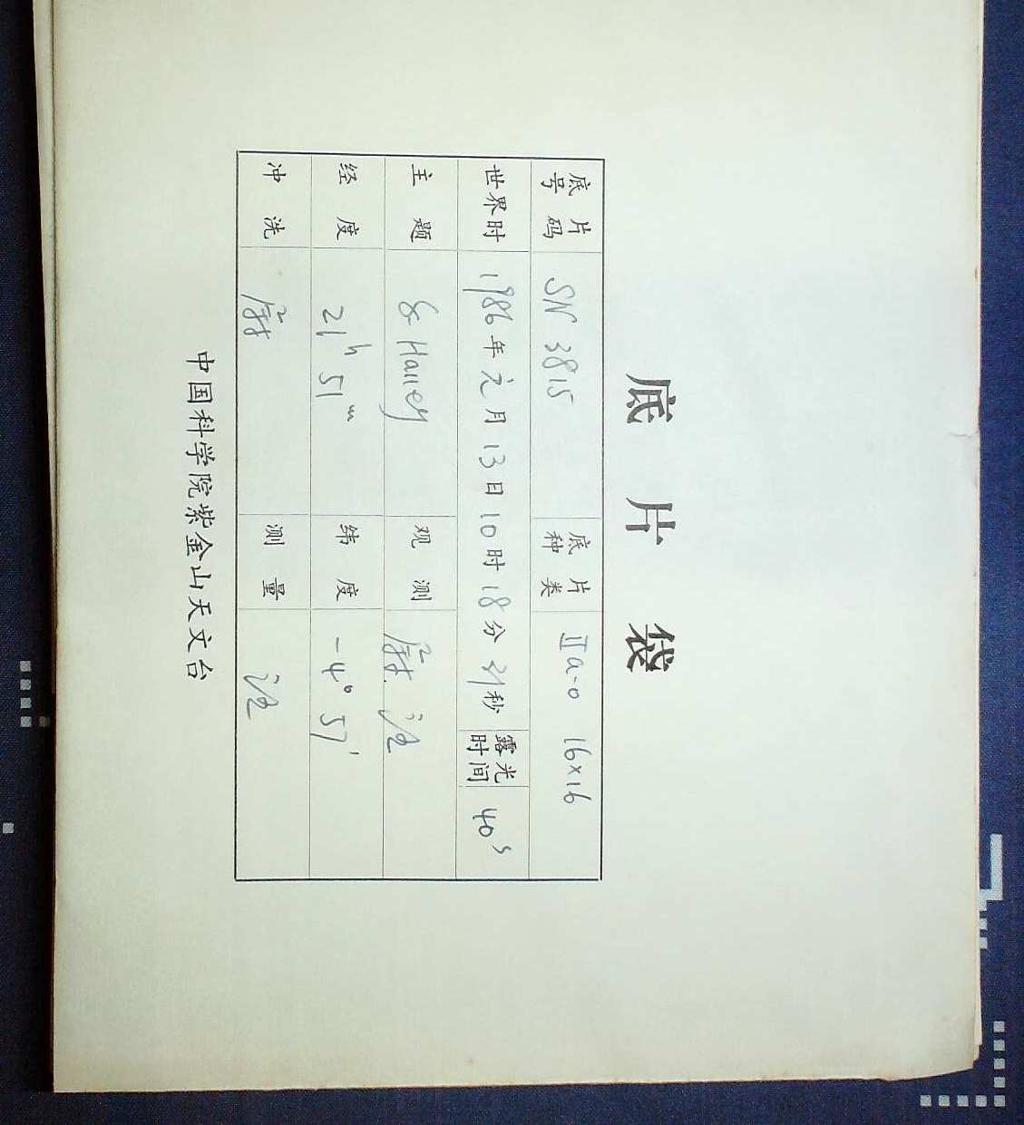 底片袋
底片号码 SN 3815 底片种类 IIa-0 16×16
世界时 1986年元月13日10时18分21秒 露光时间 40s
主题 & Halley 观测
经度 21h 51m 纬度 -4° 57'
冲洗 测量
中国科学院紫金山天文台